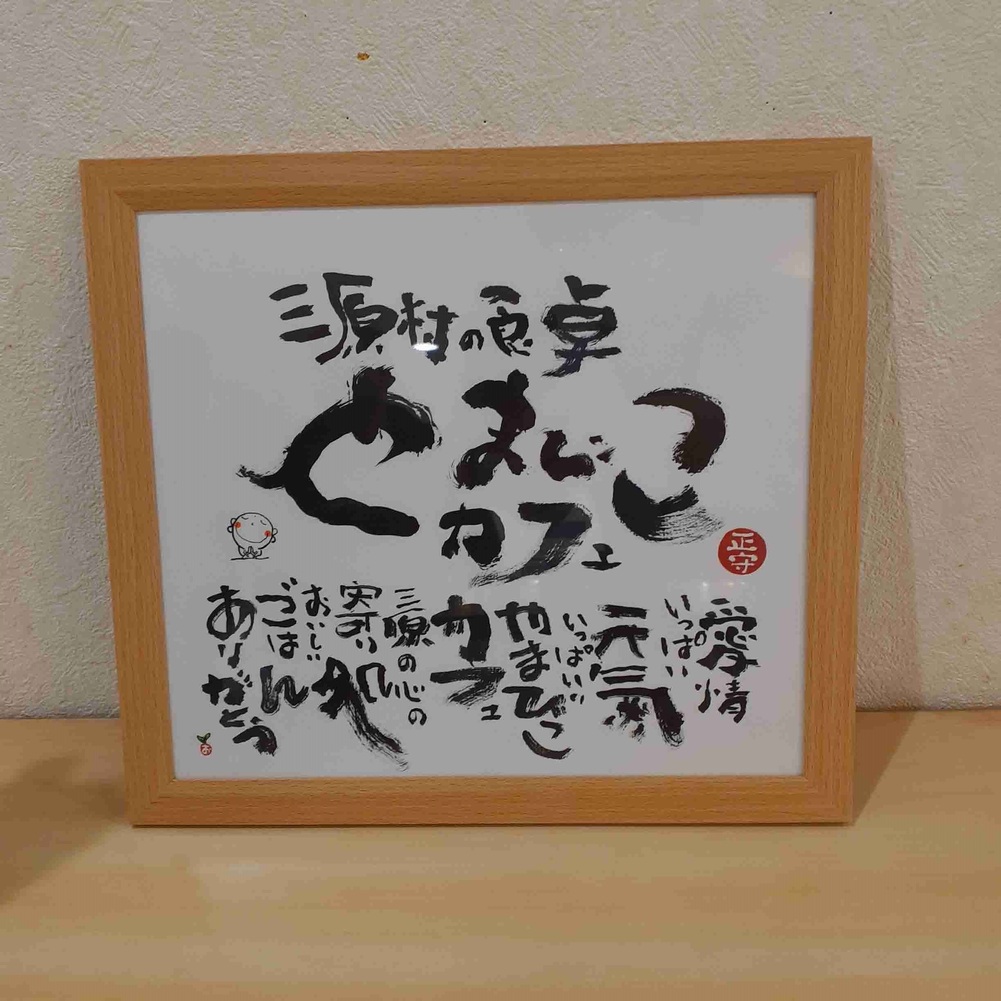 三原村の食卓
やまびこ
カフェ
正守
愛情
いっぱい
元気
いっぱい
やまびこ
カフェ
三原の心の
実り
おいしい
ごはん
ありがとう